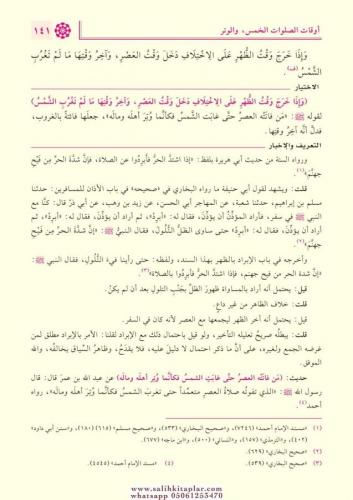 أوقات الصلوات الخمس، والوتر
١٤١
وَإِذَا خَرَجَ وَقْتُ الظُّهْرِ عَلَى الِاخْتِلَافِ دَخَلَ وَقْتُ العَصْرِ، وَآخِرُ وَقْتِهَا مَا لَمْ تَغْرُبِ
الشَّمْسُ
الاختيار
(وَإِذَا خَرَجَ وَقْتُ الظُّهْرِ عَلَى الِاخْتِلَافِ دَخَلَ وَقْتُ العَصْرِ، وَآخِرُ وَقْتِهَا مَا لَمْ تَغْرُبِ الشَّمْسُ)
لقوله ﷺ: «مَن فاتَتْه العصرُ حتَّى غابَت الشَّمسُ فكأنَّما وُتِرَ أهلَه وماله»، جعلَها فائتةً بالغروب،
فدلَّ أنَّه آخِرُ وقتِها.
التعريف والإخبار
ورواه الستة من حديث أبي هريرة بلفظ: «إذا اشتدَّ الحرُّ فأبرِدُوا عن الصلاة، فإنَّ شدَّةَ الحرِّ مِن فَيْحِ
جهنَّمَ»(١).
قلت: ويشهد لقول أبي حنيفة ما رواه البخاري في «صحيحه» في باب الأذان للمسافرين: حدثنا
مسلم بن إبراهيم، حدثنا شعبة، عن المهاجر أبي الحسن، عن زيد بن وهب، عن أبي ذرّ قال: كنَّا مع
النبيّ ﷺ في سفر، فأراد المؤذِّنُ أن يؤذِّنَ، فقال له: «أبرِدْ»، ثم أراد أن يؤذِّنَ، فقال له: «أبرِدْ»، ثم
أراد أن يؤذِّنَ، فقال له: «أبرِدْ» حتى ساوى الظلُّ التُّلُولَ، فقال النبيُّ ﷺ: «إنَّ شدَّةَ الحرِّ من فَيْحِ جهنَّمَ»
(٢).
وأخرجه في باب الإبراد بالظهر بهذا السند، ولفظه: حتى رأينا فيءَ التُّلُولِ، فقال النبي ﷺ:
«إنَّ شدة الحر من فيح جهنم، فإذا اشتدَّ الحرُّ فأبرِدُوا بالصلاة»(٣).
قيل: يحتمل أنه أراد بالمساواة ظهورَ الظلِّ بجَنْبِ التلولِ بعد أن لم يكنْ.
قلت: خلاف الظاهر من غير داعٍ.
قيل: يحتمل أنه أخر الظهر ليجمعها مع العصر لأنه كان في السفر.
قلت: يبطلُه صريحُ تعليلِه التأخيرَ، ولو قيل باحتمال ذلك مع الإبراد لقلنا: الأمر بالإبراد مطلق لمن
غرضه الجمع ولغيره، على أنَّ ما ذكر احتمال لا دليلَ عليه، فلا يقدَحُ، وظاهرُ السياق يخالفُه، والله
الموفق.
حديث: (مَن فاتَتْه العصرُ حتَّى غابَت الشمسُ فكأنَّما وُتِرَ أهلَه ومالَه) عن عبد الله بن عمرَ قال: قال
رسول الله ﷺ: «الذي تفوتُه صلاةُ العصر متعمِّداً حتى تغربَ الشمسُ فكأنَّما وُتِرَ أهلَه ومالَه»، رواه
أحمد(٤).
(١) «مسند الإمام أحمد» (٧٢٤٦)، و«صحيح البخاري» (٥٣٣)، و«صحيح مسلم» (٦١٥) (١٨٠)، و«سنن أبي داود»
(٤٠٢)، و«الترمذي» (١٥٧)، و«النسائي» (٥٠٠)، و«ابن ماجه» (٦٧٧).
(٢) «صحيح البخاري» (٦٢٩).
(٣) «صحيح البخاري» (٥٣٩).
(٤) «مسند الإمام أحمد» (٤٥٤٥).
www.salihkitaplar.com
whatsapp 05061253470